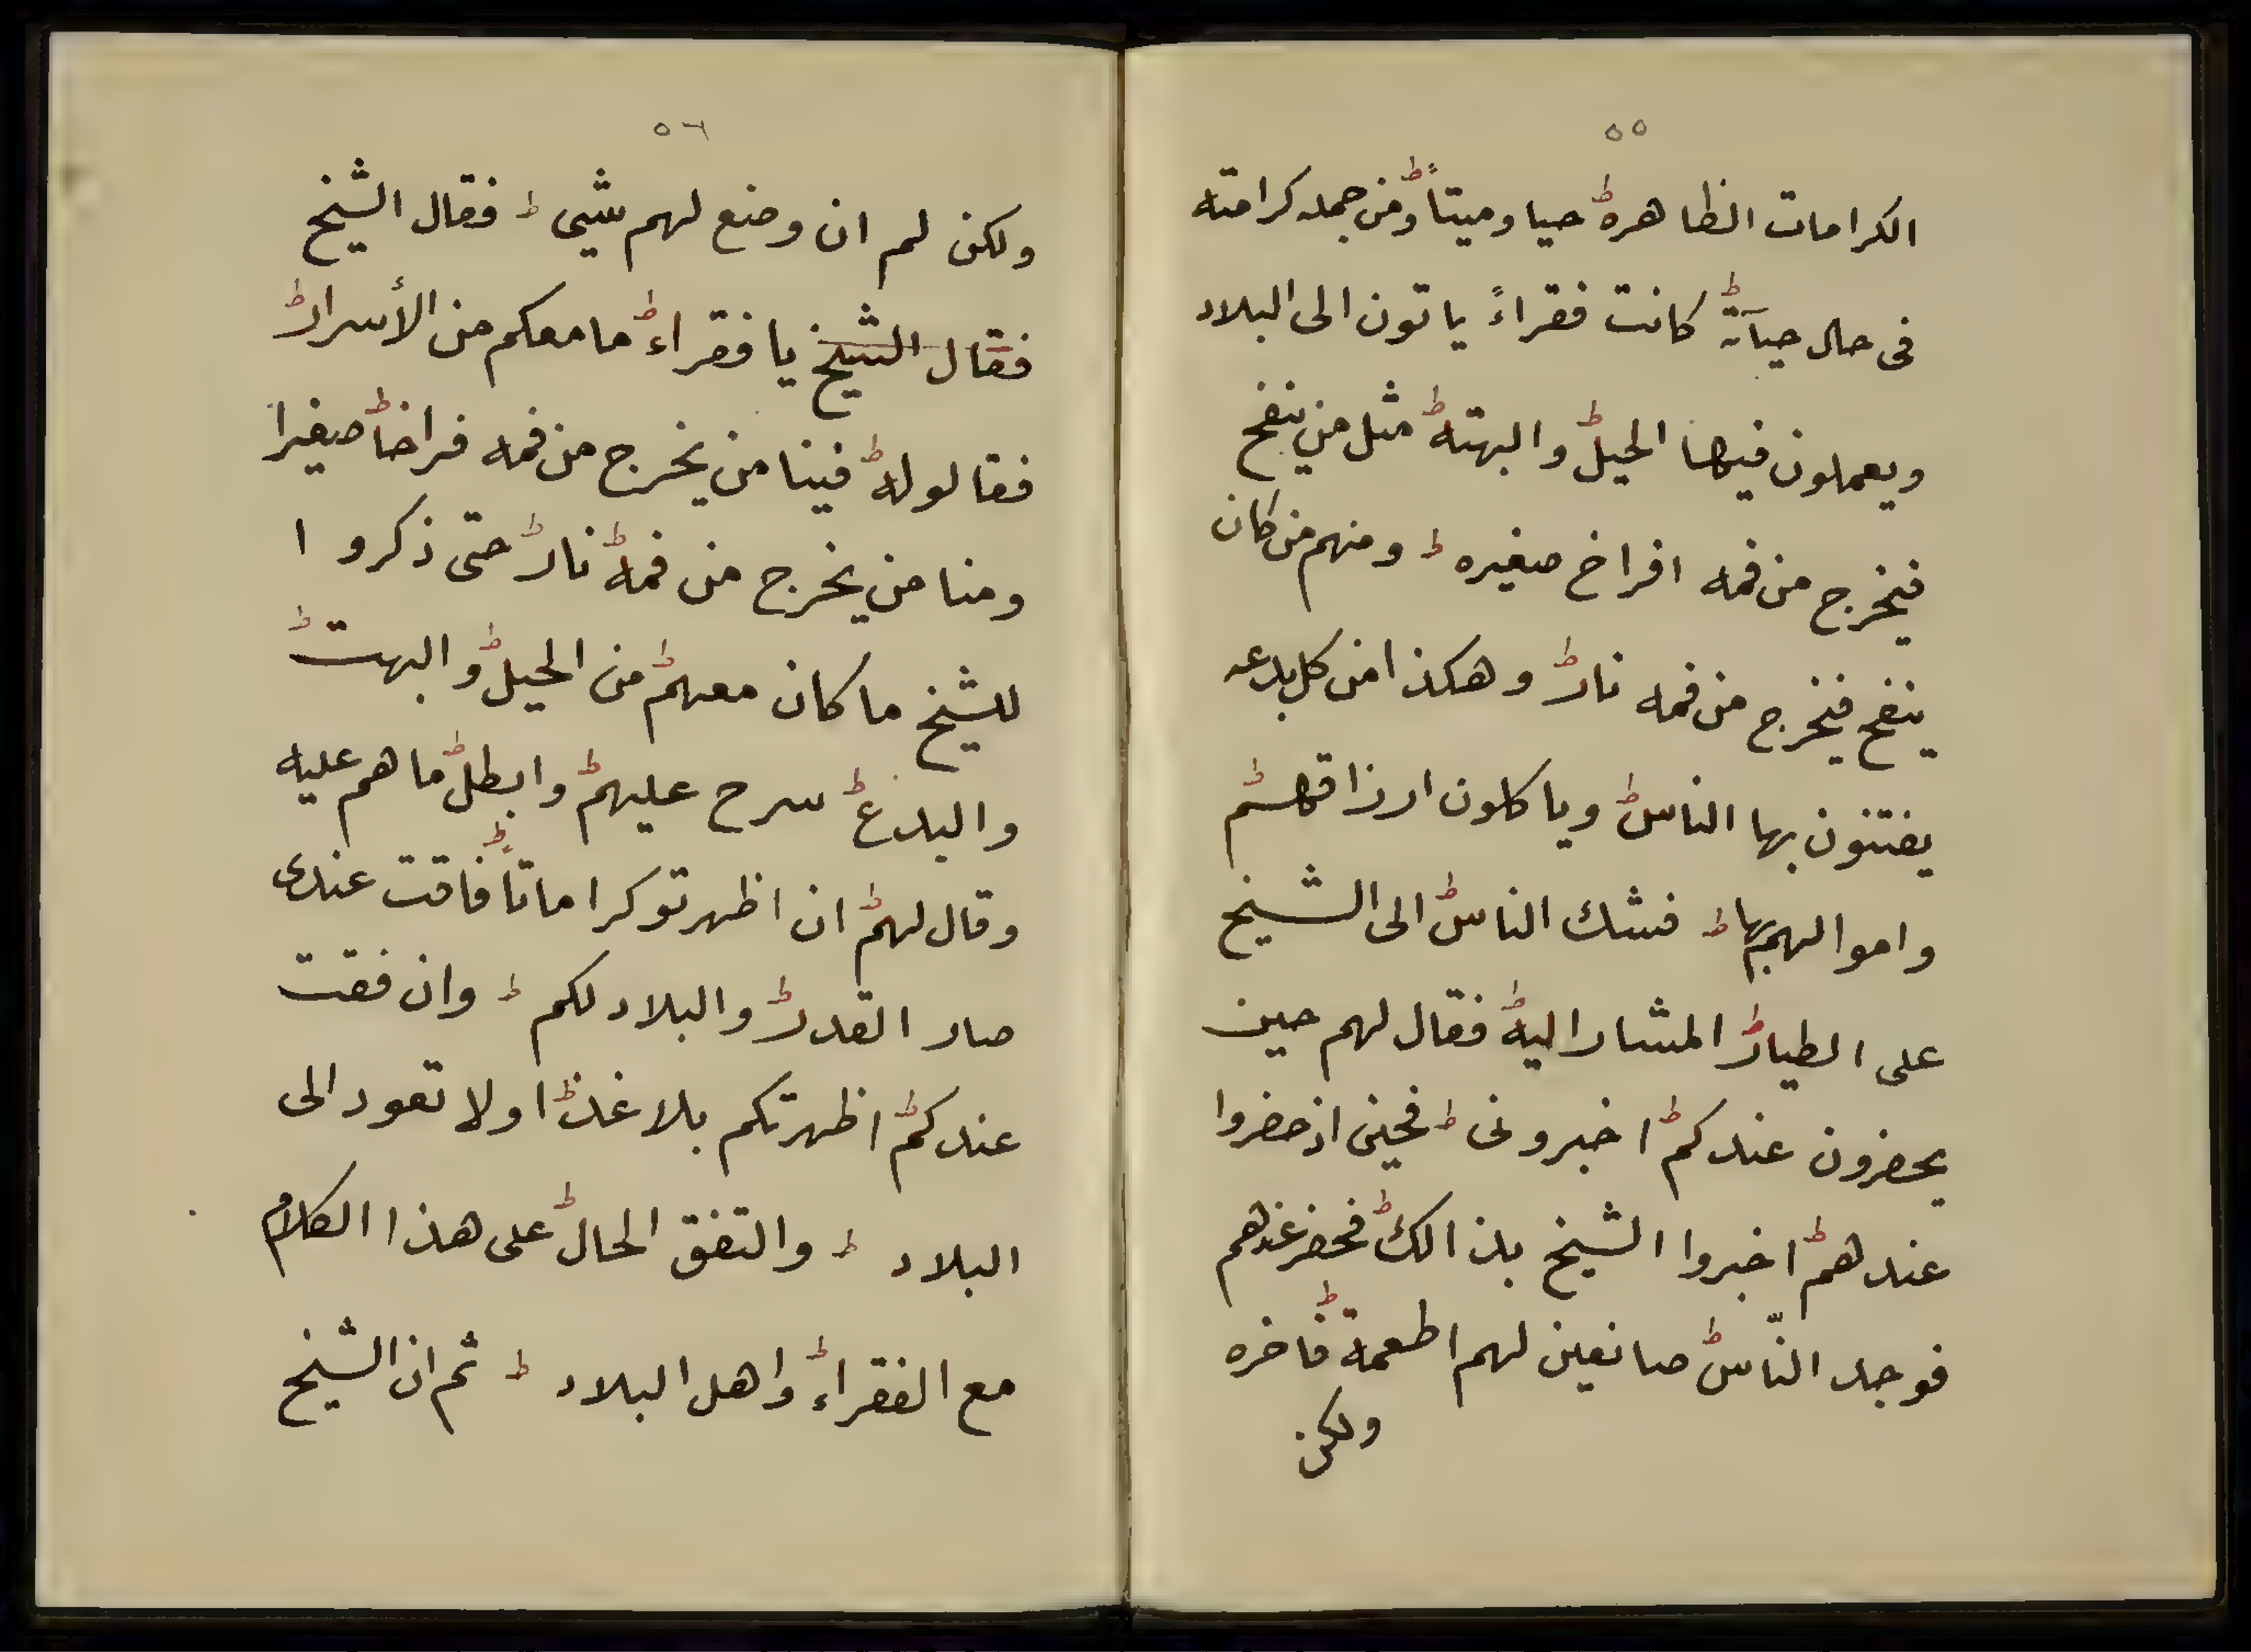 ٥٥
الكرامات الظاهرة حيا وميتاً ومن جمله كرامته
فى حال حيآته كانت فقراءً ياتون الى البلاد
ويعملون فيها الحيل والبهته مثل من ينفخ
فيخرج من فمه افراخ صغيره ومنهم من كان
ينفخ فيخرج من فمه نار وهكذا من كل بدعه
يفتنون بها الناس وياكلون ارزاقهم
واموالهم بها فشك الناس الى الشيخ
على الطيار المشار اليه فقال لهم حين
يحضرون عندكم اخبرونى فحين اذ حضروا
عندهم اخبروا الشيخ بذالك فحضر عندهم
فوجد النّاس صانعين لهم اطعمة فاخره
ولكن
٥٦
ولكن لم ان وضع لهم شيى فقال الشيخ
فقال الشيخ يا فقراء ما معكم من الأسرار
فقالوله فينا من يخرج من فمه فراخاً صغيرا
ومنا من يخرج من فمه نار حتى ذكروا
للشيخ ما كان معهم من الحيل والبهت
والبدع سرح عليهم وابطل ما هم عليه
وقال لهم ان اظهرتو كراماتاً فاقت عندى
صار القدر والبلاد لكم وان فقت
عندكم اظهرتكم بلا غذا ولا تعود الى
البلاد والتفق الحال على هذا الكلام
مع الفقراء واهل البلاد ثم ان الشيخ